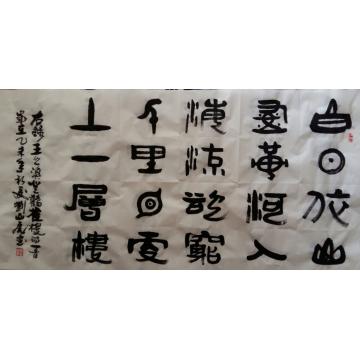 白日依山
盡黃河入
海流欲窮
千里目更
上一層樓
右錄王之渙登鸛雀樓詩一首
歲在乙未年 劉山 書